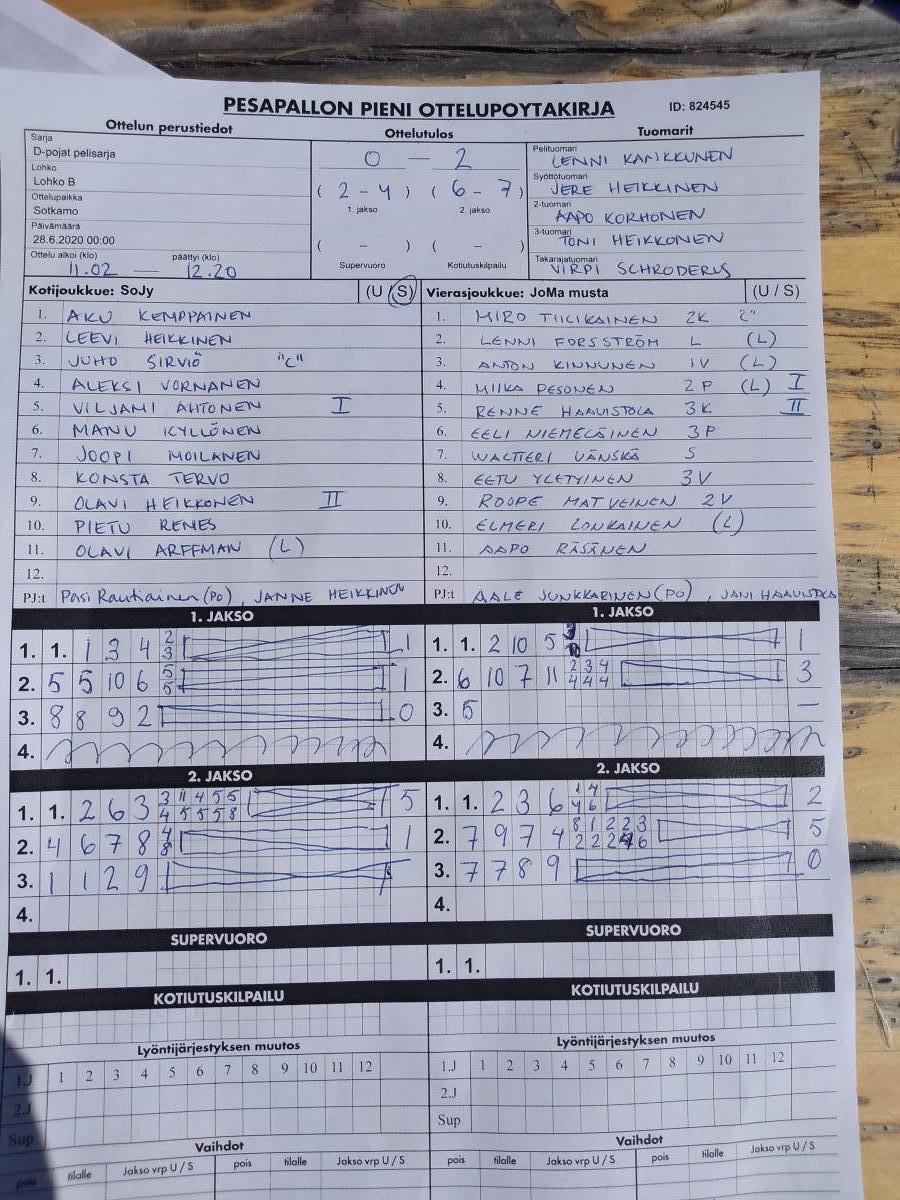 PESAPALLON PIENI OTTELUPOYTAKIRJA ID: 824545
Ottelun perustiedot Ottelutulos Tuomarit
Sarja
D-pojat pelisarja
Lohko
Lohko B
Ottelupaikka
Sotkamo
Päivämäärä
28.6.2020 00:00
Ottelu alkoi (klo) päättyi (klo)
11.02 — 12.20
0 — 2
( 2 - 4 ) ( 6 - 7 )
1. jakso 2. jakso
( - ) ( - )
Supervuoro Kotiutuskilpailu
Pelituomari
LENNI KANKKUNEN
Syöttötuomari
JERE HEIKKINEN
2-tuomari
AAPO KORHONEN
3-tuomari
TONI HEIKKONEN
Takarajatuomari
VIRPI SCHRODERUS
Kotijoukkue: SoJy (U / S)
1. AKU KEMPPAINEN
2. LEEVI HEIKKINEN
3. JUHO SIRVIÖ "C"
4. ALEKSI VORNANEN
5. VILJAMI AHTONEN I
6. MANU KYLLÖNEN
7. JOOPI MOILANEN
8. KONSTA TERVO
9. OLAVI HEIKKONEN II
10. PIETU RENES
11. OLAVI ARFFMAN (L)
12.
PJ:t Pasi Rautiainen (PO), JANNE HEIKKINEN
Vierasjoukkue: JoMa musta (U / S)
1. MIRO TIILIKAINEN 2K "C"
2. LENNI FORSSTRÖM L (L)
3. ANTON KINNUNEN 1V (L)
4. MIIKA PESONEN 2P (L) I
5. RENNE HAAVISTOLA 3K II
6. EELI NIEMELÄINEN 3P
7. WALTTERI VÄNSKÄ S
8. EETU YLETYINEN 3V
9. ROOPE MATVEINEN 2V
10. ELMERI LONKAINEN (L)
11. AAPO RÄSÄNEN
12.
PJ:t AALE JUNKKARINEN (PO), JANI HAAVISTOLA
1. JAKSO
1. 1. 1 3 4 2 1
3
2. 5 5 10 6 5 1
5
3. 8 8 9 2 0
4.
1. JAKSO
1. 1. 2 10 5 1
2. 6 10 7 11 2 3 4 3
4 4 4
3. 5 —
4.
2. JAKSO
1. 1. 2 6 3 3 11 4 5 5 5
4 5 5 5 8
2. 4 6 7 8 4 1
8
3. 1 1 2 9
4.
2. JAKSO
1. 1. 2 3 6 1 4 2
4 6
2. 7 9 7 4 8 1 2 2 3 5
2 2 2 4 6
3. 7 7 8 9 0
4.
SUPERVUORO
1. 1.
SUPERVUORO
1. 1.
KOTIUTUSKILPAILU
KOTIUTUSKILPAILU
Lyöntijärjestyksen muutos
1.J 1 2 3 4 5 6 7 8 9 10 11 12
2.J
Sup
Lyöntijärjestyksen muutos
1.J 1 2 3 4 5 6 7 8 9 10 11 12
2.J
Sup
Vaihdot
pois tilalle Jakso vrp U / S pois tilalle Jakso vrp U / S
Vaihdot
pois tilalle Jakso vrp U / S pois tilalle Jakso vrp U / S